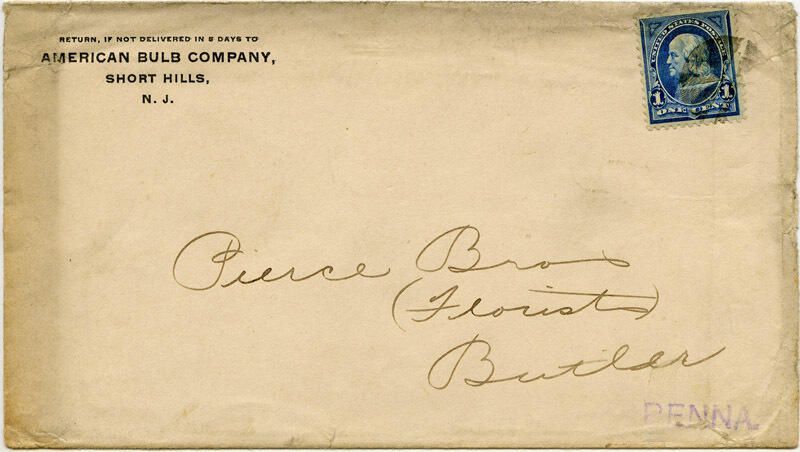 RETURN, IF NOT DELIVERED IN 5 DAYS TO
AMERICAN BULB COMPANY,
SHORT HILLS,
N. J.
UNITED STATES POSTAGE
1 1
ONE CENT
Pierce Bros
(Florists)
Butler
PENNA.